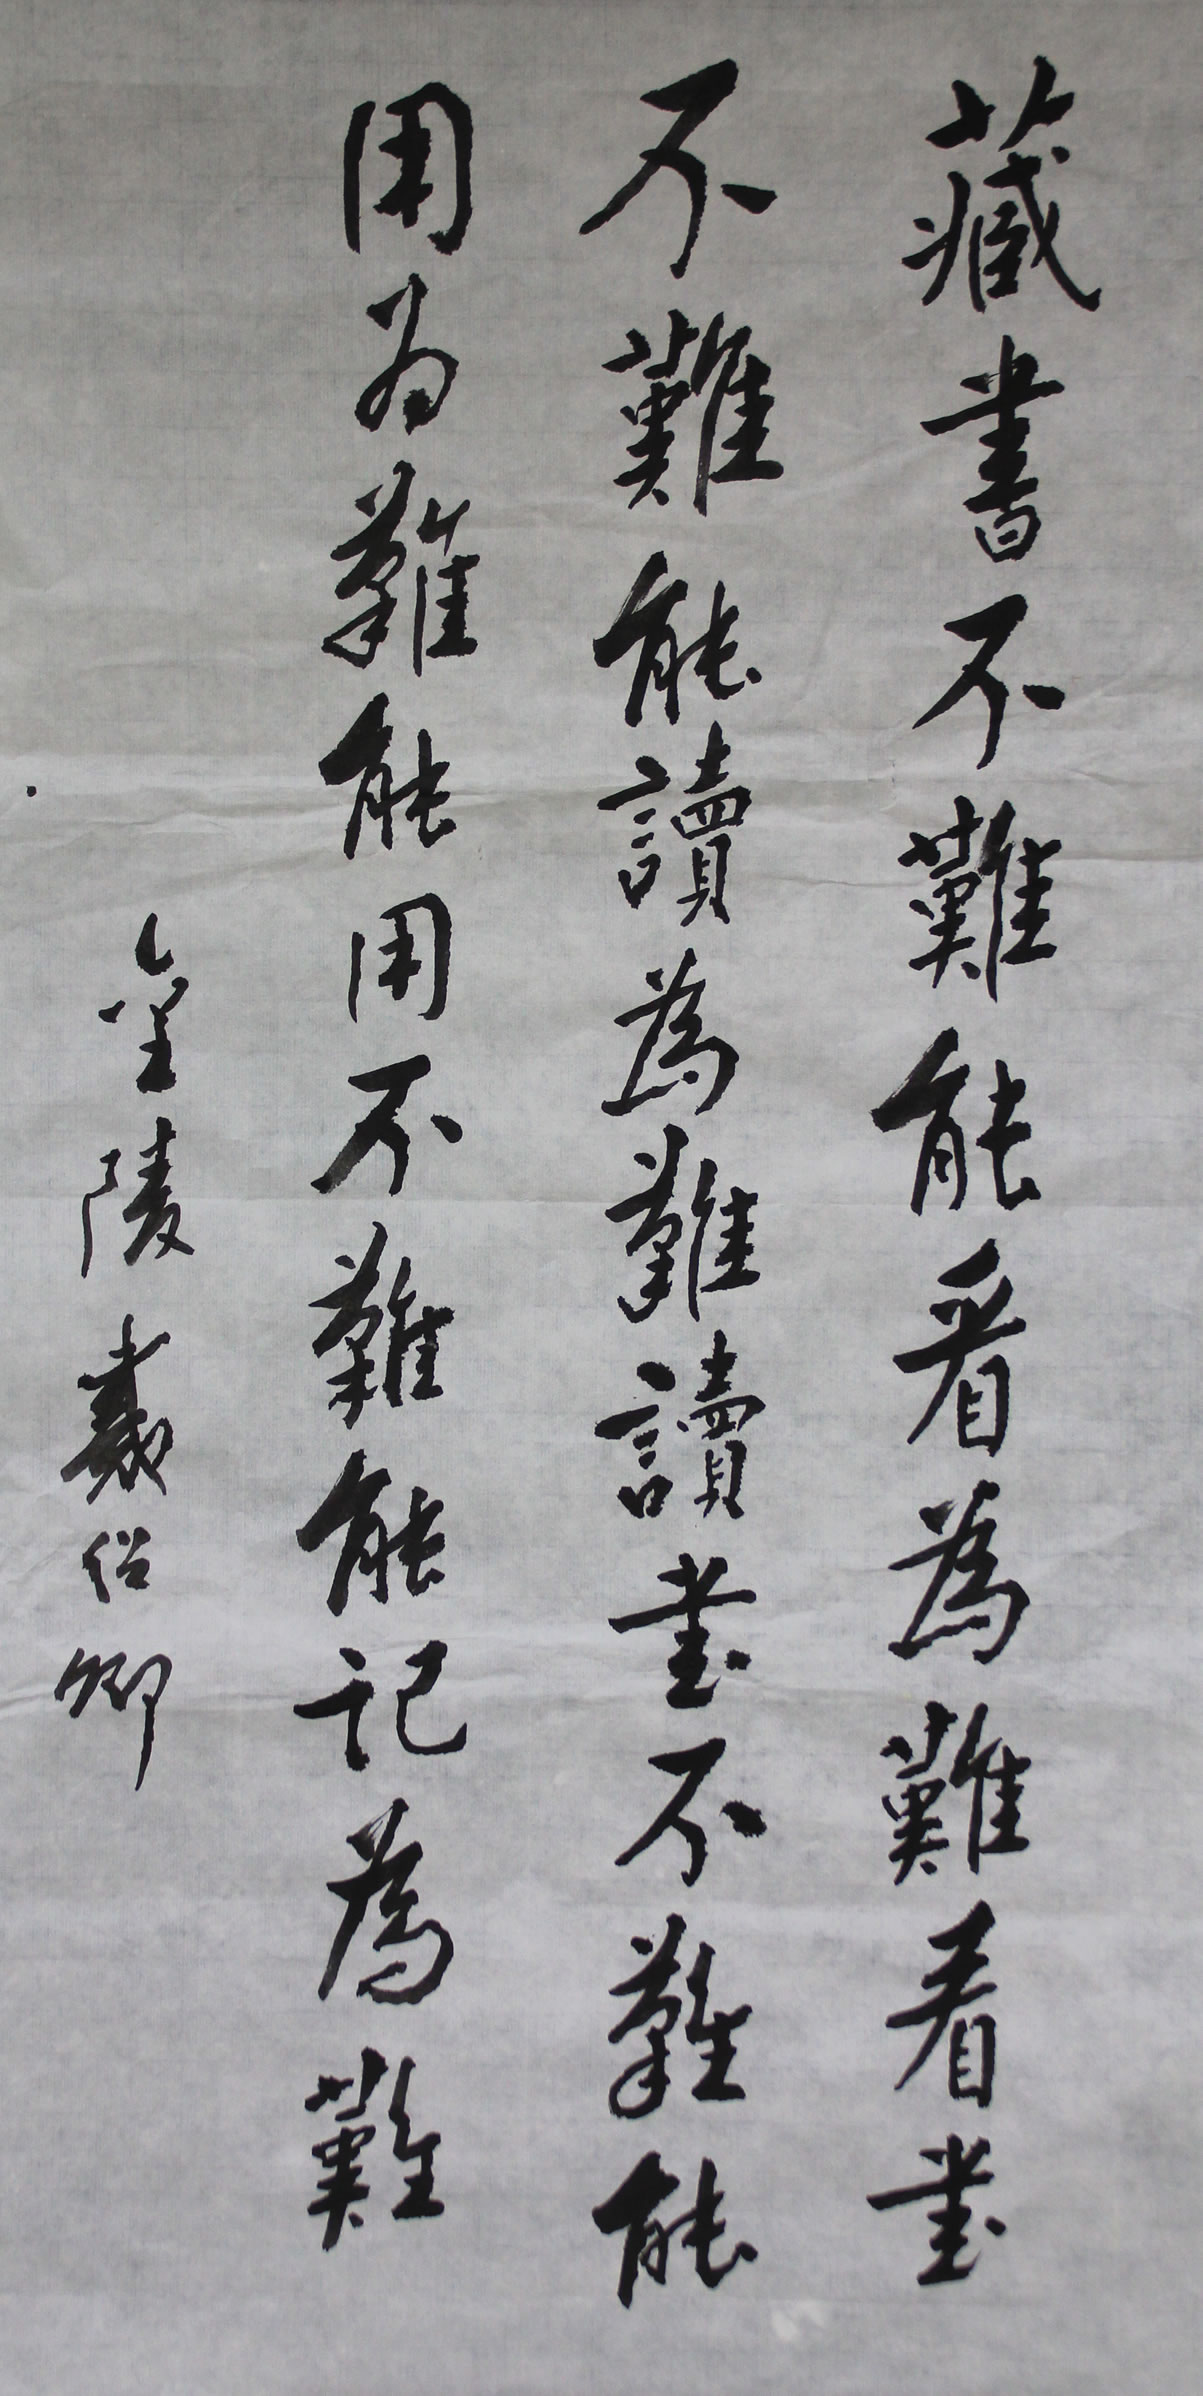 藏書不難能看為難看書
不難能讀為難讀書不難能
用为難能用不難能記為難
金陵戴俗卿